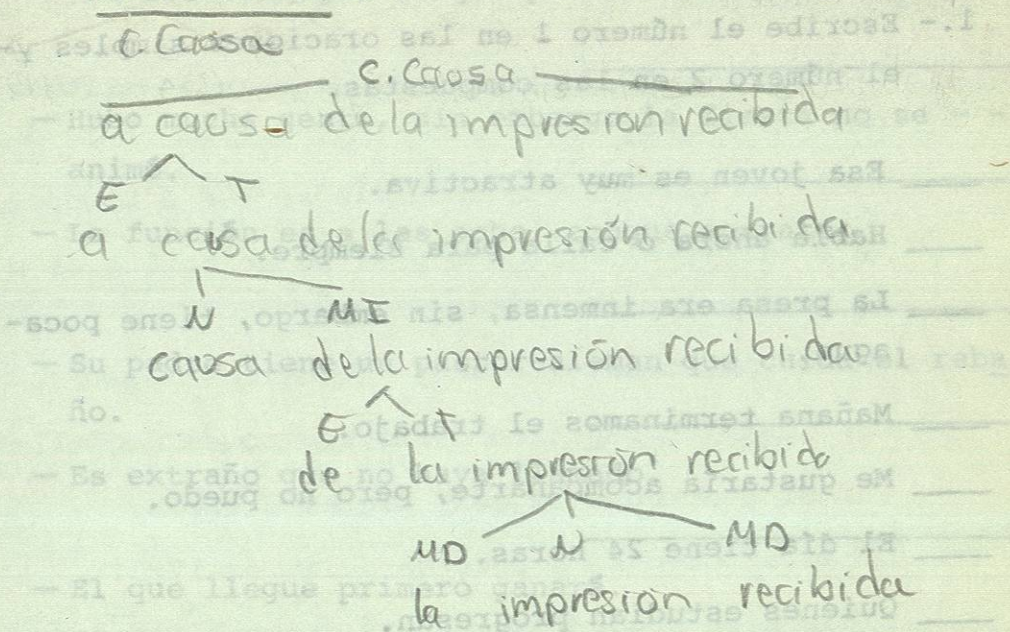 C.Causa
C.Causa
a causa de la impresion recibida
E T
a causa de la impresión recibida
N MI
causa de la impresión recibida
E T
de la impresión recibida
MD N MD
la impresion recibida